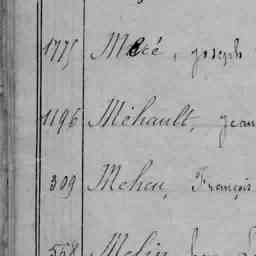 1775 Méré, joseph
1196 Méhault, jean
309 Meheu, François
568 Melin,